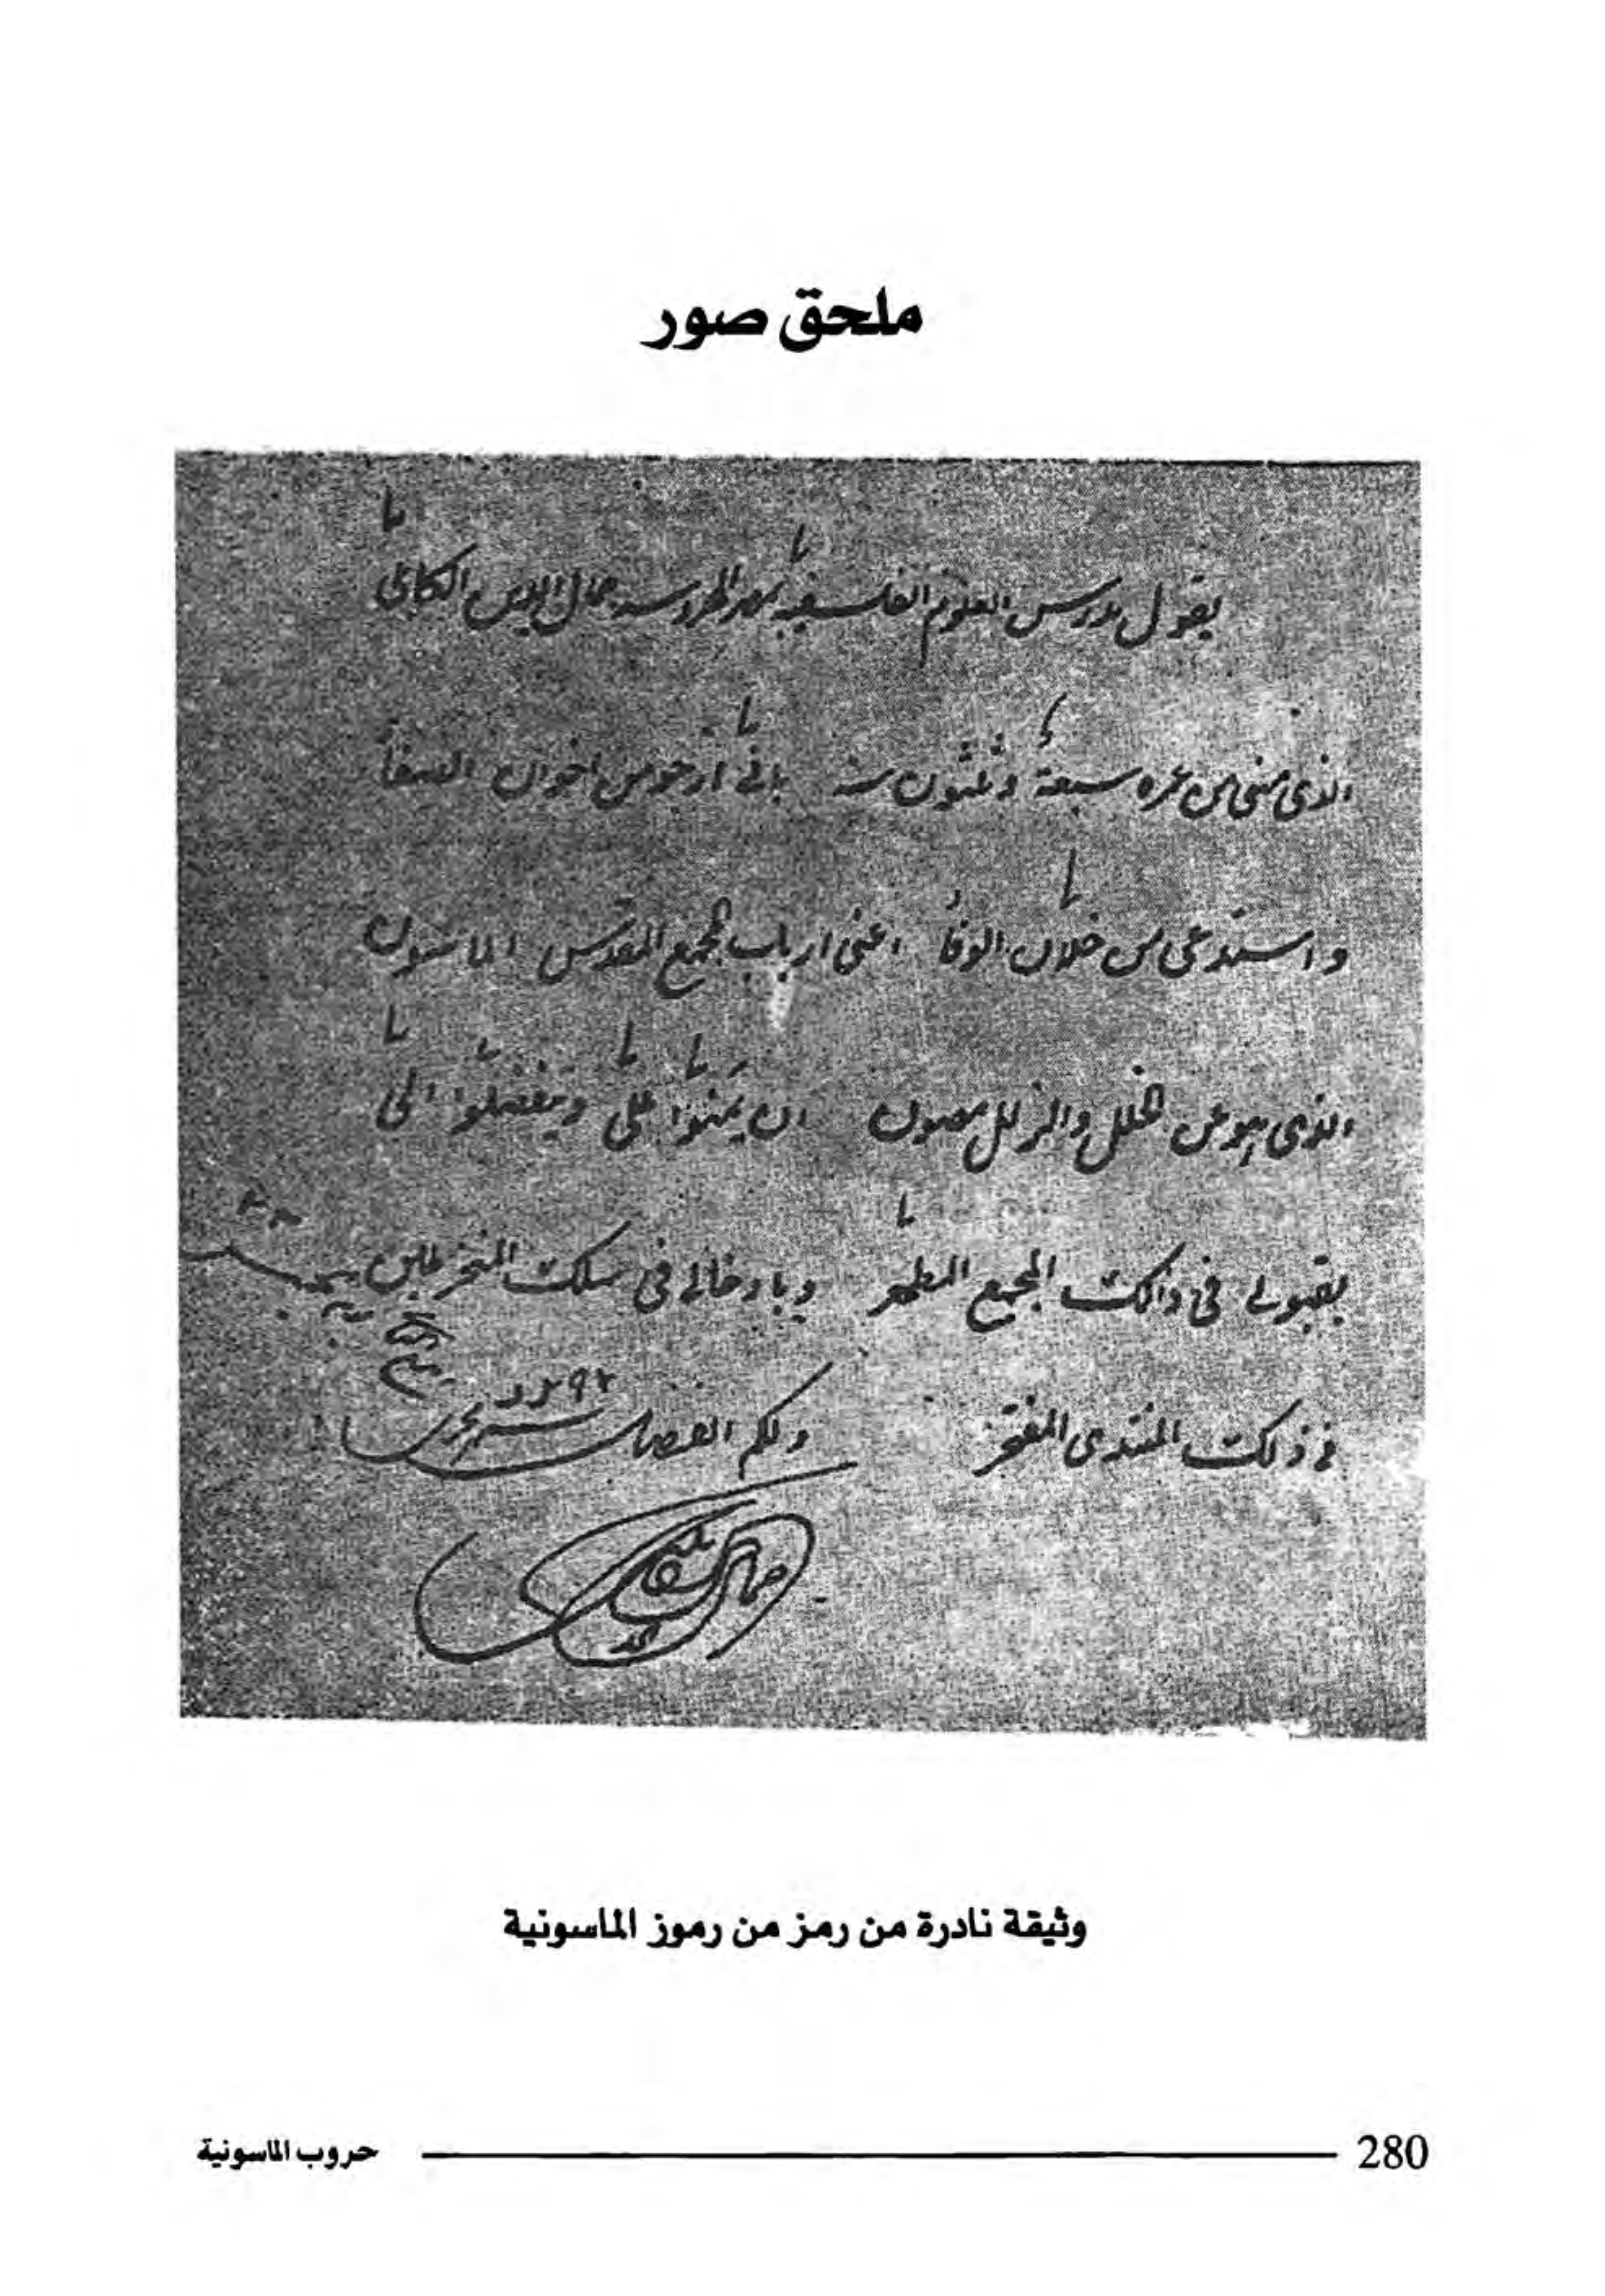 ملحق صور
يقول مدرس العلوم الفلسفية بمصر المحروسة جمال الدين الكابلى
الذى مضى من عمره سبعة وثلثون سنة بانى ارجو من اخوان الصفا
واستدعى من خلان الوفا اعنى ارباب المجمع المقدس الماسون
الذى هو عن الخلل والزلل مصون ان يمنوا على ويتفضلوا الى
بقبولى فى ذالك المجمع المطهر وبادخالى فى سلك المنخرطين
فى ذلك المنتدى المفتخر ولكم الفضل
١٢٩٢
جمال الدين
وثيقة نادرة من رمز من رموز الماسونية
280 حروب الماسونية